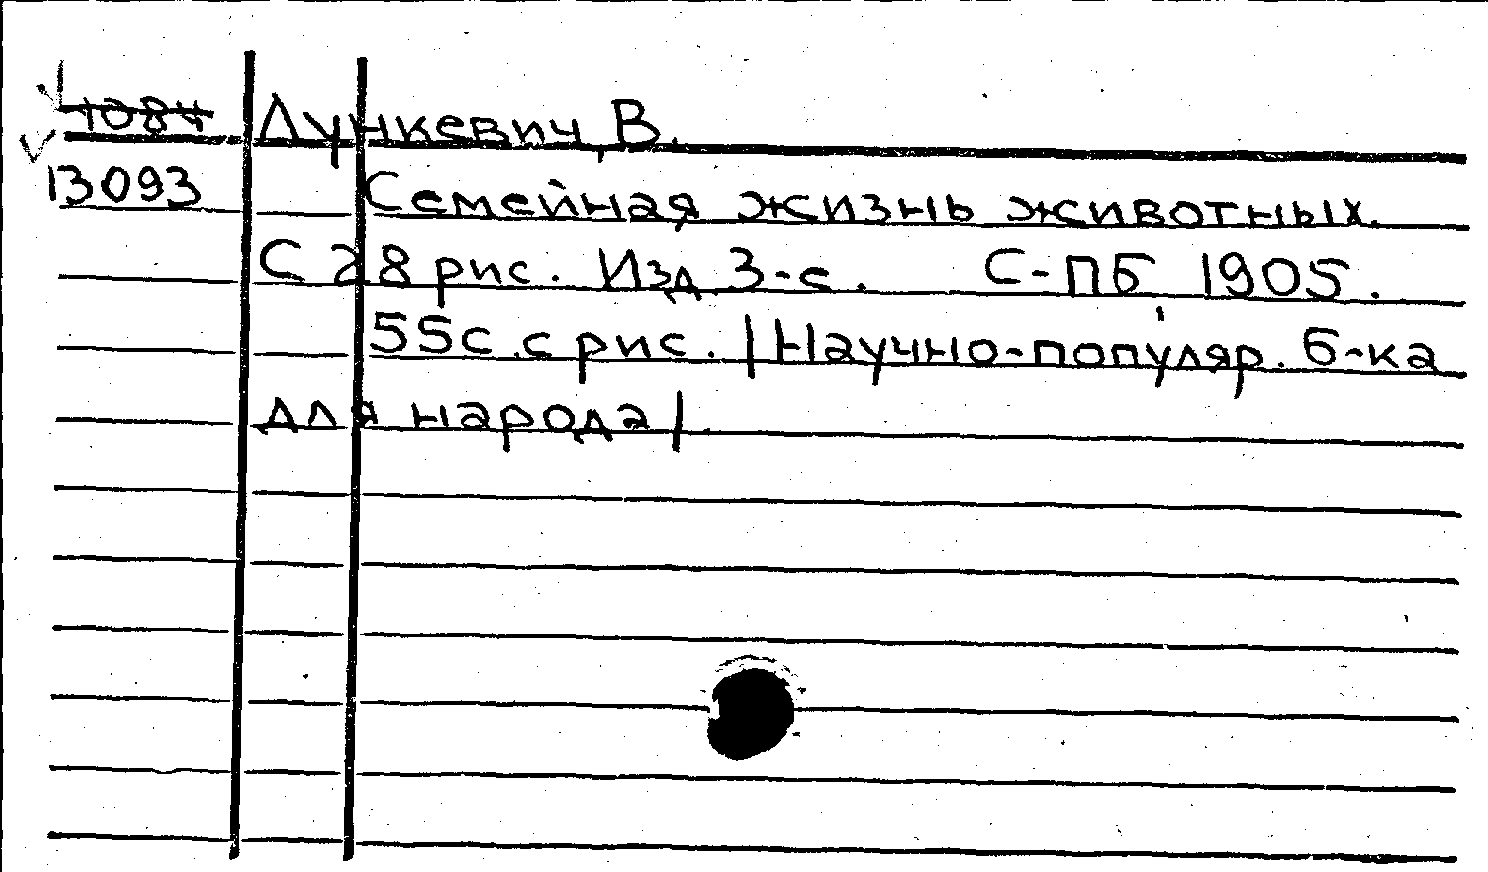 1084 Лункевич, В.
13093 Семейная жизнь животных.
С 28 рис. Изд 3-е. С-ПБ, 1905.
55с. с рис. |Научно-популяр. б-ка
для народа|.